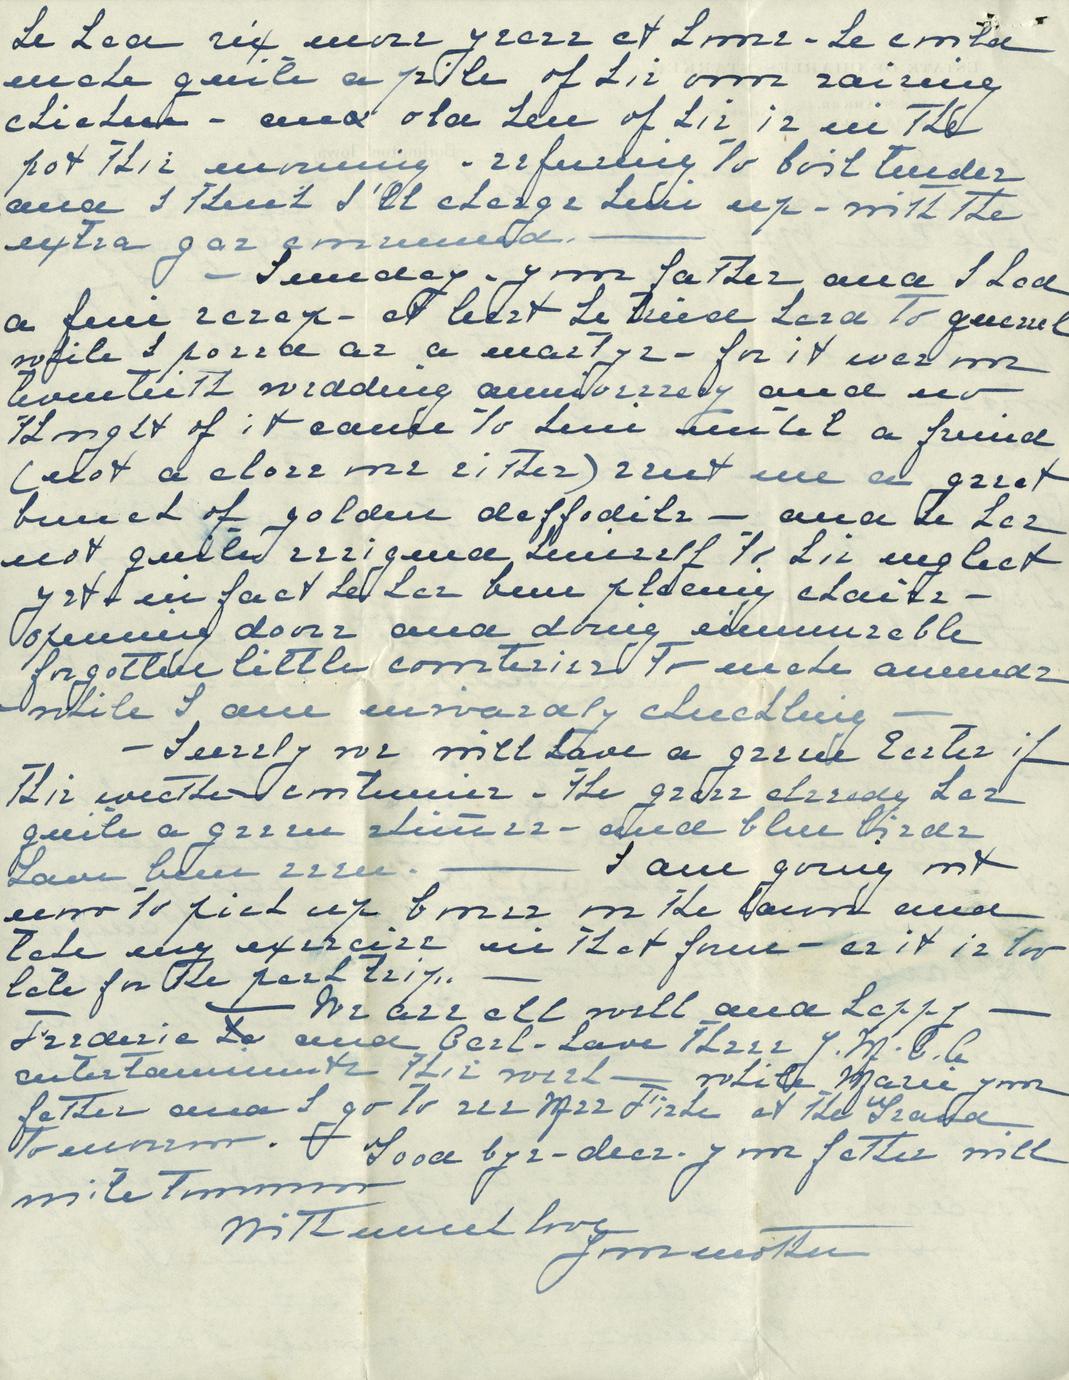 he had six more years at home - he could
make quite a pile of his own raising
chickens - and old hen of his is in the
pot this morning - refusing to boil tender
and I think I'll charge him up - with the
extra gas consumed. —
— Sunday - your father and I had
a fine scrap - at least he tried hard to quarrel
while I posed as a martyr - for it was our
twentieth wedding anniversary and no
thought of it came to him until a friend
(not a close one either) sent me a great
bunch of golden daffodils — and he has
not quite resigned himself to his neglect
yet - in fact he has been placing chairs -
opening doors and doing innumerable
forgotten little courtesies to make amends
- while I am inwardly chuckling —
— Surely we will have a green Easter if
this weather continues - the grass already has
quite a green shimmer - and blue birds
have been seen. — I am going out
now to pick up bones on the lawn and
take my exercise in that form - as it is too
late for the park trip. —
— We are all well and happy —
Frederic and Carl - have three Y.M.C.A
entertainments this week — while Marie your
father and I go to see Mrs Fiske at the Grand
tomorrow. — Good bye - dear - your father will
write tomorrow
With much love
Your mother